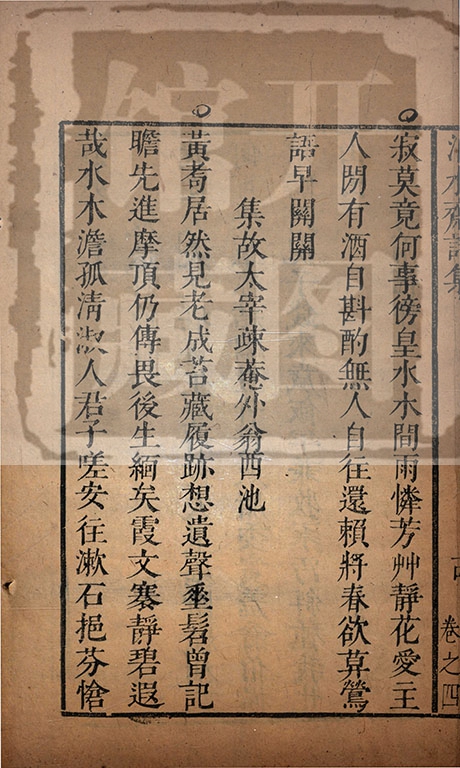 寂莫竟何事徬皇水木間雨憐芳艸靜花愛主
人閒有酒自斟酌無人自往還賴將春欲莫鶯
語早關關
集故太宰疎菴外翁西池
黃耇居然見老成苔藏履跡想遺聲垂髫曾記
瞻先進摩頂仍傳畏後生緬矣霞文褰靜碧遐
哉水木澹孤淸淑人君子嗟安往漱石挹芬愴
卷之四